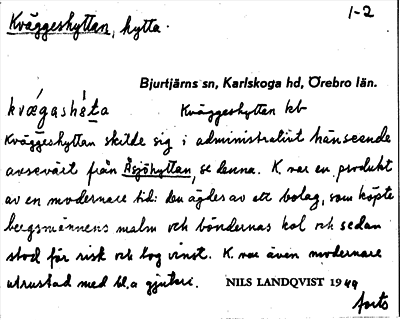 Kväggeshyttan, hytta. 1-2
Bjurtjärns sn, Karlskoga hd, Örebro län.
kvǽgashèta Kväggeshyttan kb
Kväggeshyttan skilde sig i administrativt hänseende
avsevärt från Åsjöhyttan, se denna. K. var en produkt
av en modernare tid: den ägdes av ett bolag, som köpte
bergsmännens malm och böndernas kol och sedan
stod för risk och tog vinst. K. var även modernare
utrustad med bl.a gjuteri. NILS LANDQVIST 1949
forts